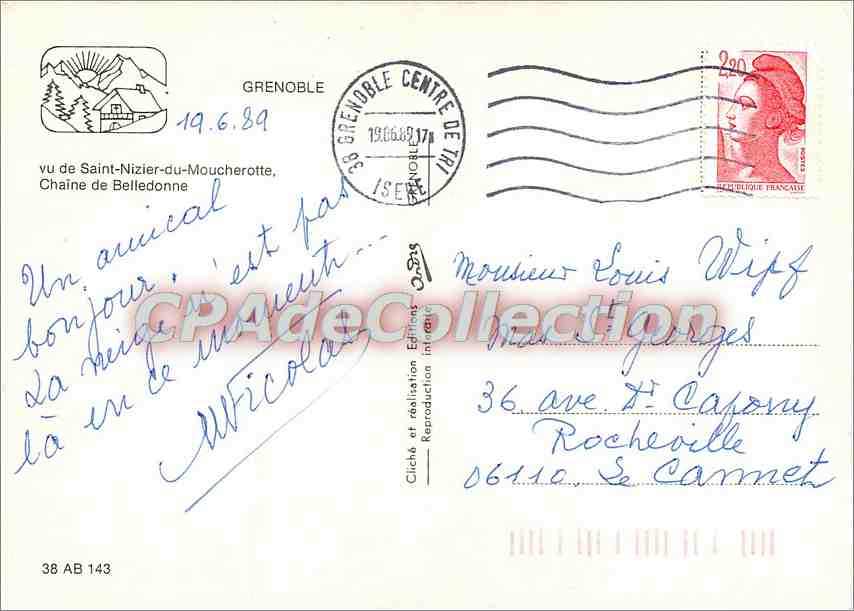 GRENOBLE
19.6.89
vu de Saint-Nizier-du-Moucherotte,
Chaîne de Belledonne
38 GRENOBLE CENTRE DE TRI
19.06.89.17H
ISERE
GRENOBLE
2,20
POSTES
REPUBLIQUE FRANÇAISE
Un amical
bonjour.
La neige n'est pas
là en ce moment...
Nicolas
CPAdeCollection
Cliché et réalisation Editions André
Reproduction interdite
Monsieur Louis Wipf
Mas St Georges
36 ave. Dr Capony
Rocheville
06110. Le Cannet
38 AB 143